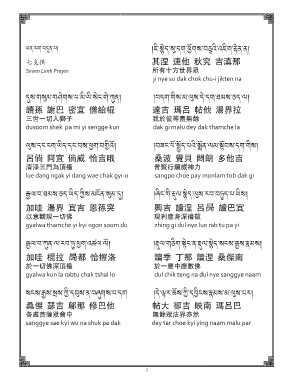 ཡན་ལག་བདུན་པ།
七支供
Seven Limb Prayer
དུས་གསུམ་གཤེགས་པ་མི་ཡི་སེང་གེ་ཀུན། །
讀孫 謝巴 密宜 僧給棍
三世一切人獅子
dusoom shek pa mi yi sengge kun
ལུས་དང་ངག་ཡིད་དང་བས་ཕྱག་བགྱིའོ། །
呂倘 阿宜 倘威 恰吉哦
清淨三門為頂禮
lue dang ngak yi dang wae chak gyi-o
རྒྱལ་བ་ཐམས་ཅད་ཡིད་ཀྱིས་མངོན་སུམ་དུ། །
加哇 湯界 宜吉 恩孫突
以意顯現一切佛
gyalwa thamche yi kyi ngon soom du
རྒྱལ་བ་ཀུན་ལ་རབ་ཏུ་ཕྱག་འཚལ་ལོ། །
加哇 棍拉 局都 恰擦洛
於一切佛深頂禮
gyalwa kun la rabtu chak tshal lo
སངས་རྒྱས་སྲས་ཀྱི་དབུས་ན་བཞུགས་པ་དག །
桑傑 瑟吉 鄔那 修巴他
各處菩薩眾會中
sanggye sae kyi wu na shuk pa dak
།ཇི་སྙེད་སུ་དག་ཕྱོགས་བཅུའི་འཇིག་རྟེན་ན། །
其涅 速他 秋究 吉滇那
所有十方世界眾
ji nye su dak chok chu-i jikten na
།བདག་གིས་མ་ལུས་དེ་དག་ཐམས་ཅད་ལ། །
達吉 瑪呂 帖他 湯界拉
我於彼等應無餘
dak gi malu dey dak thamche la
།བཟང་པོ་སྤྱོད་པའི་སྨོན་ལམ་སྟོབས་དག་གིས། །
桑波 覺貝 闁朗 多他吉
普賢行願威神力
sangpo choe pay monlam tob dak gi
།ཞིང་གི་རྡུལ་སྙེད་ལུས་རབ་བཏུད་པ་ཡིས། །
興吉 讀涅 呂局 讀巴宜
現剎塵身深禮敬
zhing gi dul nye lue rab tu pa yi
།རྡུལ་གཅིག་སྟེང་ན་རྡུལ་སྙེད་སངས་རྒྱས་རྣམས། །
讀季 丁那 讀涅 桑傑南
於一塵中塵數佛
dul chik teng na dul nye sanggye naam
།དེ་ལྟར་ཆོས་ཀྱི་དབྱིངས་རྣམས་མ་ལུས་པར། །
帖大 卻吉 映南 瑪呂巴
無餘眾法界亦然
dey tar choe kyi ying naam malu par
3